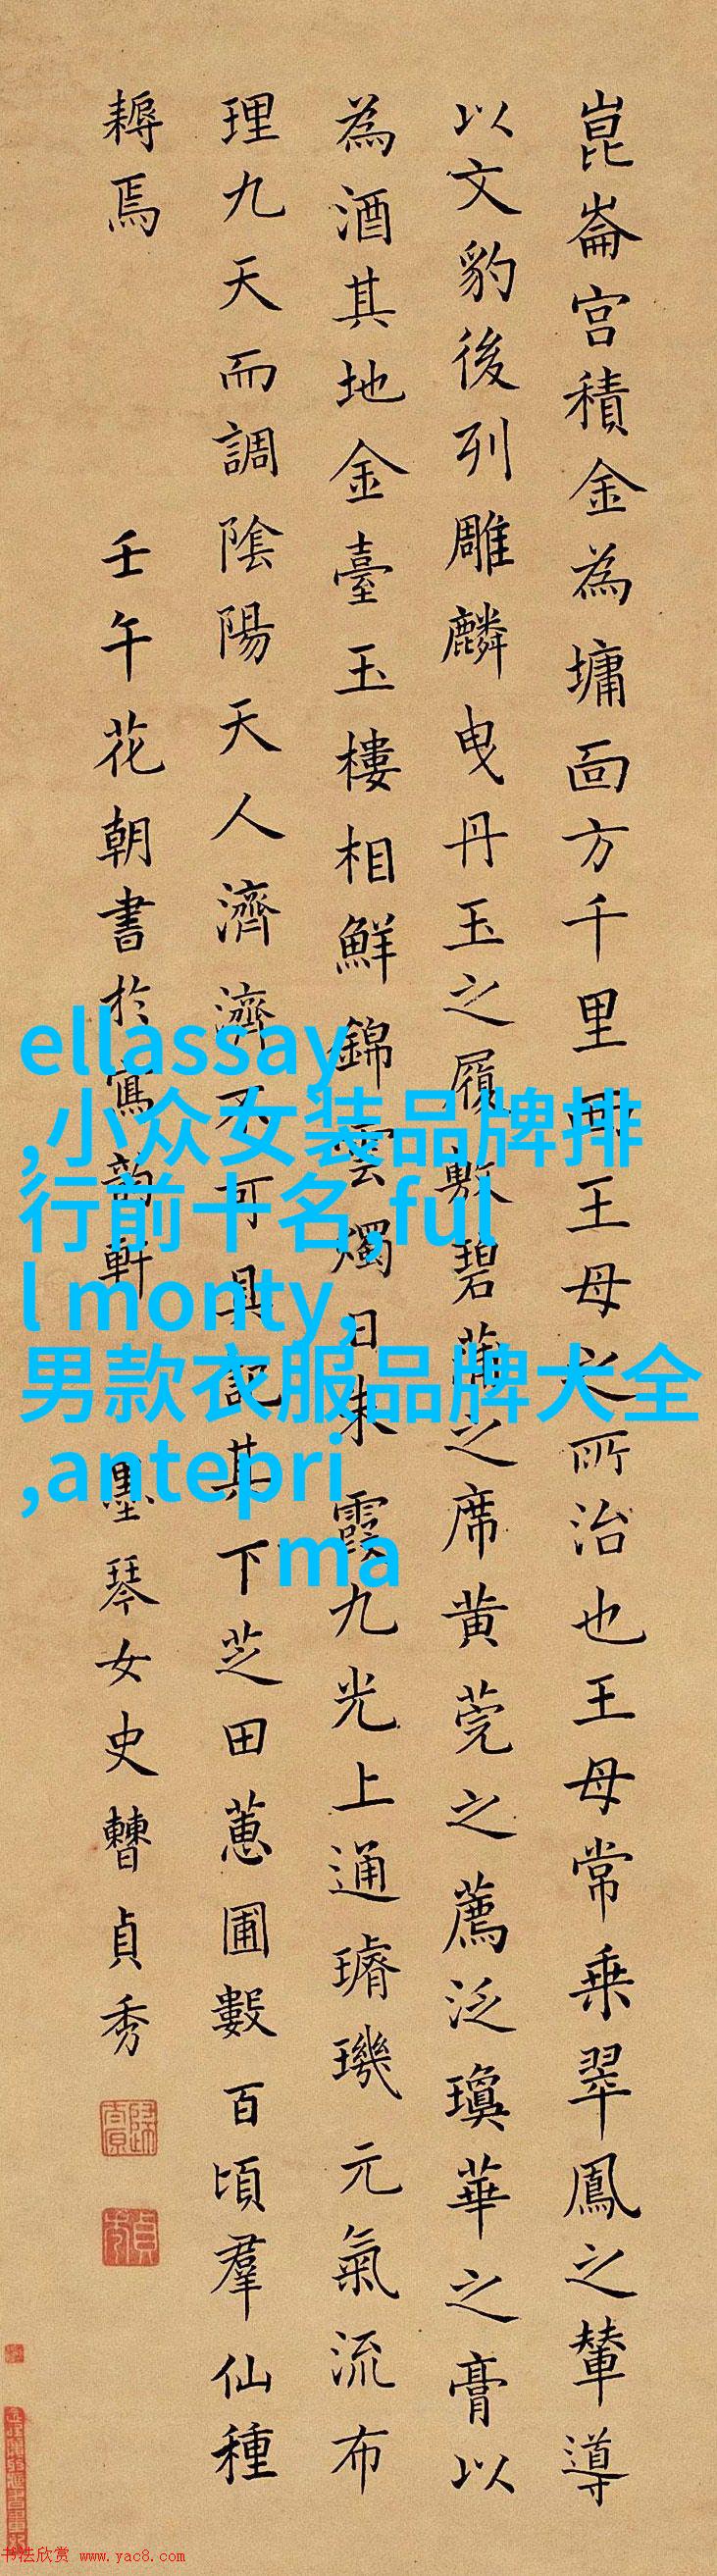 崑崙宮積金為墉面方千里西王母之所治也王母常乘翠鳳之輦導
以文豹後列雕麟曳丹玉之履敷碧蒲之席黄莞之薦泛瓊華之膏以
為酒其地金臺玉樓相鮮錦雲燭日朱霞九光上通璿璣元氣流布
理九天而調陰陽天人濟濟不可具記其下芝田蕙圃數百頃羣仙種
耨焉
壬午花朝書於寫韵軒 墨琴女史曹貞秀
ellassay
,小众女装品牌排
行前十名,ful
l monty,
男款衣服品牌大全
,antepri
ma
书法欣赏 www.yac8.com